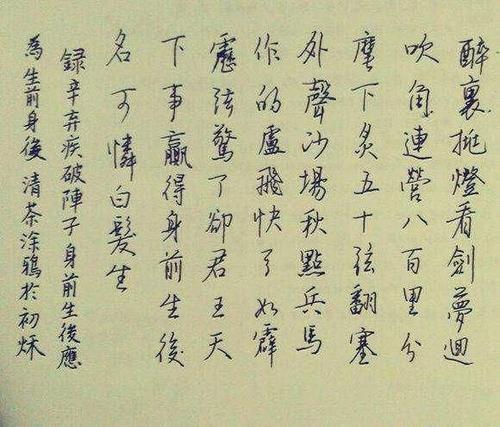 醉裏挑燈看劍夢迴
吹角連營八百里分
麾下炙五十弦翻塞
外聲沙場秋點兵馬
作的盧飛快了如霹
靂弦驚了卻君王天
下事贏得身前生後
名可憐白髮生
錄辛弃疾破陣子身前生後應
為生前身後清茶涂鴉於初秌